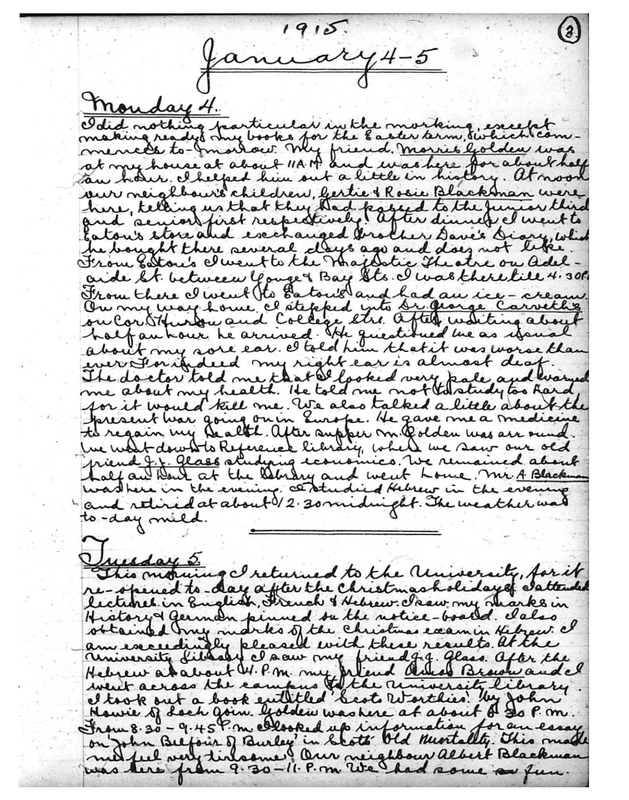 1915.
3.
January 4-5
Monday 4.
I did nothing particular in the morning, except
making ready my books for the Easter term, which com-
mences to-morrow. My friend, Morris Golden was
at my house at about 11 A.M. and was here for about half
an hour. I helped him out a little in history. At noon
our neighbour's children, Gertie & Rosie Blackman were
here, telling us that they had passed to the Junior third
and senior first respectively. After dinner I went to
Eaton's store and exchanged brother Dave's Diary, which
he bought there several days ago and does not like.
From Eaton's I went to the Majestic Theatre on Adel-
aide St. between Yonge & Bay Sts. I was there till 4.30 P.
From there I went to Eaton's and had an ice-cream.
On my way home, I stepped into Dr. George Carveth's
on Cor. Huron and College Strs. After waiting about
half an hour he arrived. He questioned me as usual
about my sore ear. I told him that it was worse than
ever. For indeed my right ear is almost deaf.
The doctor told me that I looked very pale and warned
me about my health. He told me not to study too hard
for it would kill me. We also talked a little about the
present war going on in Europe. He gave me a medicine
to regain my health. After supper M. Golden was around.
We went down to Reference library, where we saw our old
friend J.J. Glass studying economics. We remained about
half an hour at the library and went home. Mr. A. Blackman
was here in the evening. I studied Hebrew in the evening
and retired at about 12.30 midnight. The weather was
to-day mild.
Tuesday 5.
This morning I returned to the University, for it
re-opened to-day after the Christmas holidays. I attended
lectures in English, French & Hebrew. I saw my marks in
History & German pinned on the notice-board. I also
obtained my marks of the Christmas exam in Hebrew. I
am exceedingly pleased with these results. At the
University Library I saw my friend J.J. Glass. After the
Hebrew at about 4 P.M. my friend Brown and I
went across the campus to the University library.
I took out a book entitled 'Scots Worthies' by John
Howie of Loch Goin. Golden was here at about 8.30 P.M.
From 8.30 - 9.45 P.M. I looked up information for an essay
on 'John Balfour of Burley' in Scott's 'Old Mortality. This made
me feel very tiresome. Our neighbour Albert Blackman
was here from 9.30 - 11 P.M. We had some fun.